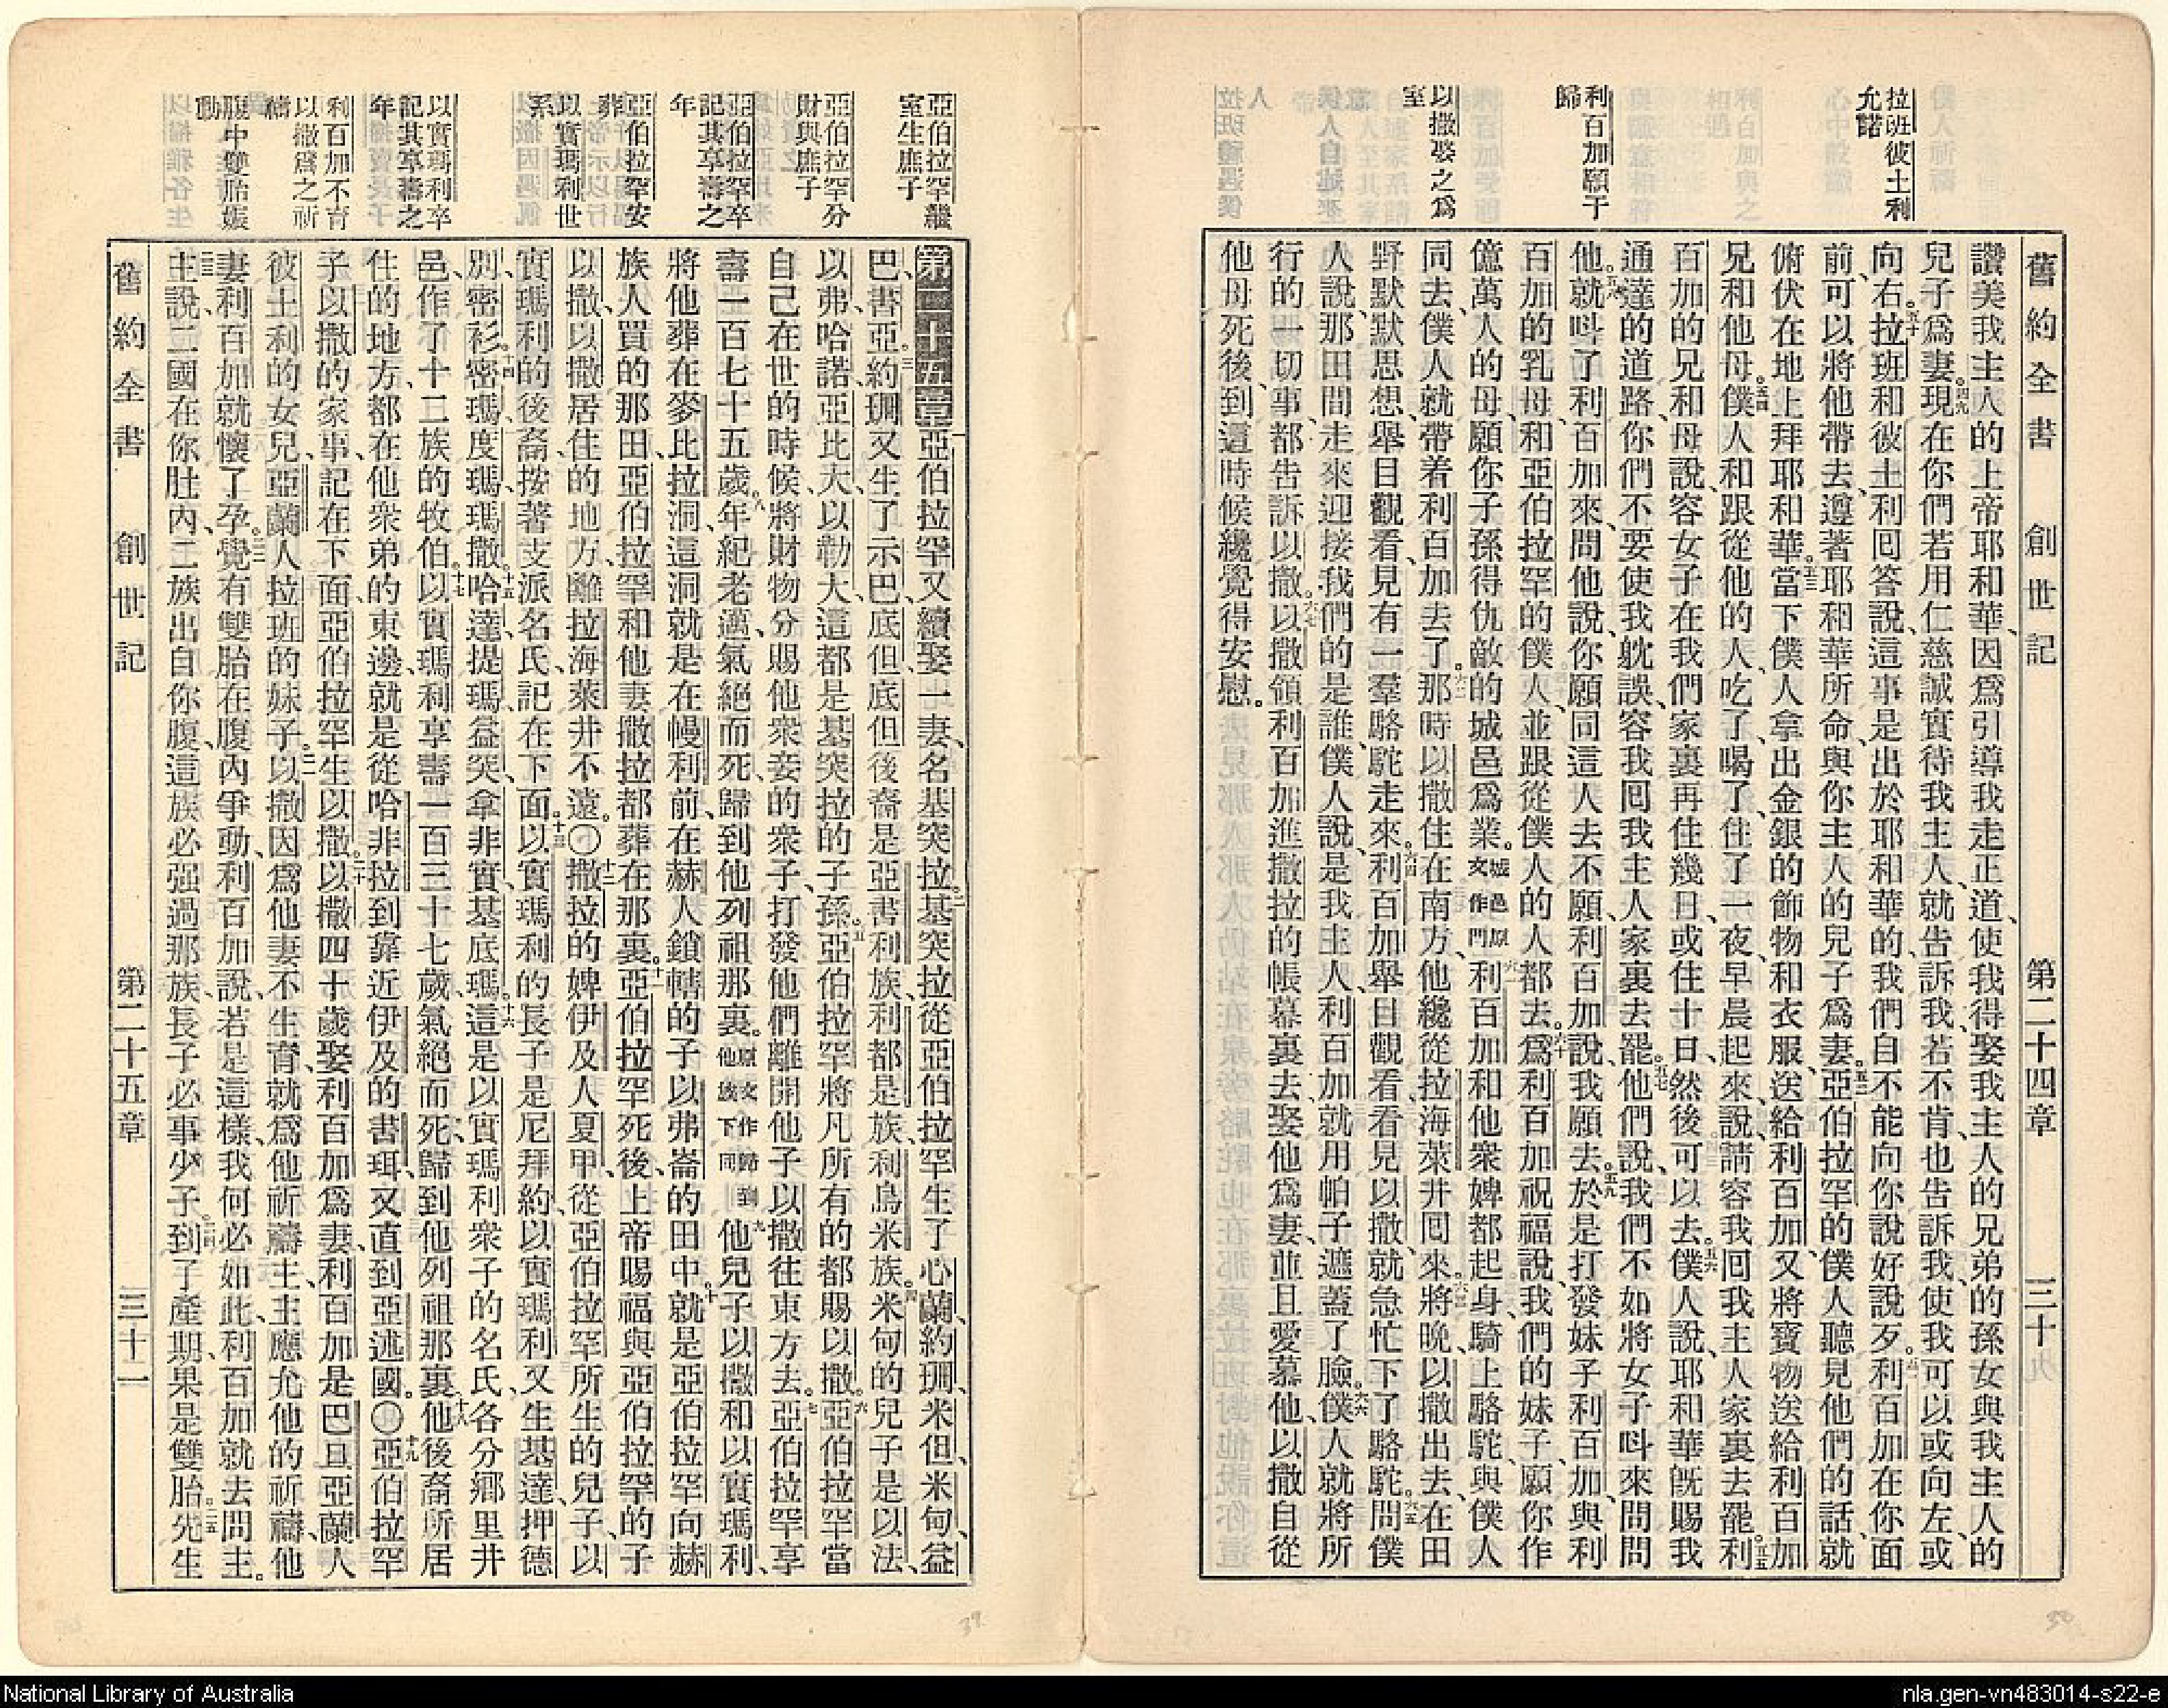 舊約全書 創世記 第二十四章 三十
拉班彼土利
允諾
利百加願于
歸
以撒娶之爲
室
讚美我主人的上帝耶和華、因爲引導我走正道、使我得娶我主人的兄弟的孫女與我主人的
兒子爲妻。四九現在你們若用仁慈誠實待我主人、就告訴我、若不肯也告訴我、使我可以或向左、或
向右。五十拉班和彼土利回答說、這事是出於耶和華的、我們自不能向你說好說歹。五一利百加在你面
前、可以將他帶去、遵著耶和華所命、與你主人的兒子爲妻。五二亞伯拉罕的僕人聽見他們的話、就
俯伏在地上拜耶和華。五三當下僕人拿出金銀的飾物和衣服、送給利百加、又將寶物送給利百加
兄和他母。五四僕人和跟從他的人、吃了、喝了、住了一夜、早晨起來、說、請容我回我主人家裏去罷。五五利
百加的兄和母說、容女子在我們家裏再住幾日、或住十日、然後可以去。五六僕人說、耶和華旣賜我
通達的道路、你們不要使我躭誤、容我回我主人家裏去罷。五七他們說、我們不如將女子呌來問問
他。五八就呌了利百加來、問他說、你願同這人去不願、利百加說、我願去。五九於是打發妹子利百加、與利
百加的乳母、和亞伯拉罕的僕人、並跟從僕人的人都去。六十爲利百加祝福說、我們的妹子、願你作
億萬人的母、願你子孫得仇敵的城邑爲業。城邑原文作門六一利百加和他衆婢都起身、騎上駱駝、與僕人
同去、僕人就帶着利百加去了。六二那時以撒住在南方、他纔從拉海萊井回來。六三將晚、以撒出去、在田
野默默思想、舉目觀看、見有一羣駱駝走來。六四利百加舉目觀看、看見以撒、就急忙下了駱駝。六五問僕
人說、那田間走來迎接我們的是誰、僕人說、是我主人、利百加就用帕子遮蓋了臉。六六僕人就將所
行的一切事、都告訴以撒。六七以撒領利百加進撒拉的帳幕裏去、娶他爲妻、並且愛慕他、以撒自從
他母死後、到這時候纔覺得安慰。
亞伯拉罕繼
室生庶子
亞伯拉罕分
財與庶子
亞伯拉罕卒
記其享壽之
年
亞伯拉罕安
葬
以實瑪利世
系
以實瑪利卒
記其享壽之
年
利百加不育
以撒爲之祈
禱
腹中雙胎媒
動
第二十五章一亞伯拉罕又續娶一妻、名基突拉。二基突拉從亞伯拉罕生了心蘭、約珊、米但、米甸、益
巴、書亞。三約珊又生了示巴、底但、底但後裔是亞書利族、利都是族、利烏米族。四米甸的兒子是以法、
以弗、哈諾、亞比大、以勒大、這都是基突拉的子孫。五亞伯拉罕將凡所有的都賜以撒。六亞伯拉罕當
自己在世的時候、將財物分賜他衆妾的衆子、打發他們離開他子以撒、往東方去。七亞伯拉罕享
壽一百七十五歲。八年紀老邁、氣絕而死、歸到他列祖那裏。原文作歸到他族下同九他兒子以撒和以實瑪利、
將他葬在麥比拉洞、這洞就是在幔利前、在赫人鎖轄的子以弗崙的田中。十就是亞伯拉罕向赫
族人買的那田、亞伯拉罕和他妻撒拉都葬在那裏。十一亞伯拉罕死後、上帝賜福與亞伯拉罕的子
以撒、以撒居住的地方、離拉海萊井不遠。〇十二撒拉的婢伊及人夏甲、從亞伯拉罕所生的兒子、以
實瑪利的後裔、按著支派名氏、記在下面。十三以實瑪利的長子是尼拜約、以實瑪利又生基達、押德
別、密衫、十四密瑪、度瑪、瑪撒。十五哈達、提瑪、益突、拿非實、基底瑪。十六這是以實瑪利衆子的名氏、各分鄉里井
邑、作了十二族的牧伯。十七以實瑪利享壽一百三十七歲、氣絕而死、歸到他列祖那裏。十八他後裔所居
住的地方、都在他衆弟的東邊、就是從哈非拉到靠近伊及的書珥、又直到亞述國。〇十九亞伯拉罕
子以撒的家事記在下面、亞伯拉罕生以撒。二十以撒四十歲、娶利百加爲妻、利百加是巴旦亞蘭人
彼土利的女兒、亞蘭人拉班的妹子。二一以撒因爲他妻不生育、就爲他祈禱主、主應允他的祈禱、他
妻利百加就懷了孕。二二覺有雙胎在腹內爭動、利百加說、若是這樣、我何必如此、利百加就去問主。
二三主說、二國在你肚內、二族出自你腹、這族必强過那族、長子必事少子。二四到了產期、果是雙胎。二五先生
舊約全書 創世記 第二十五章 三十一
39
30
National Library of Australia
nla.gen-vn483014-s22-e